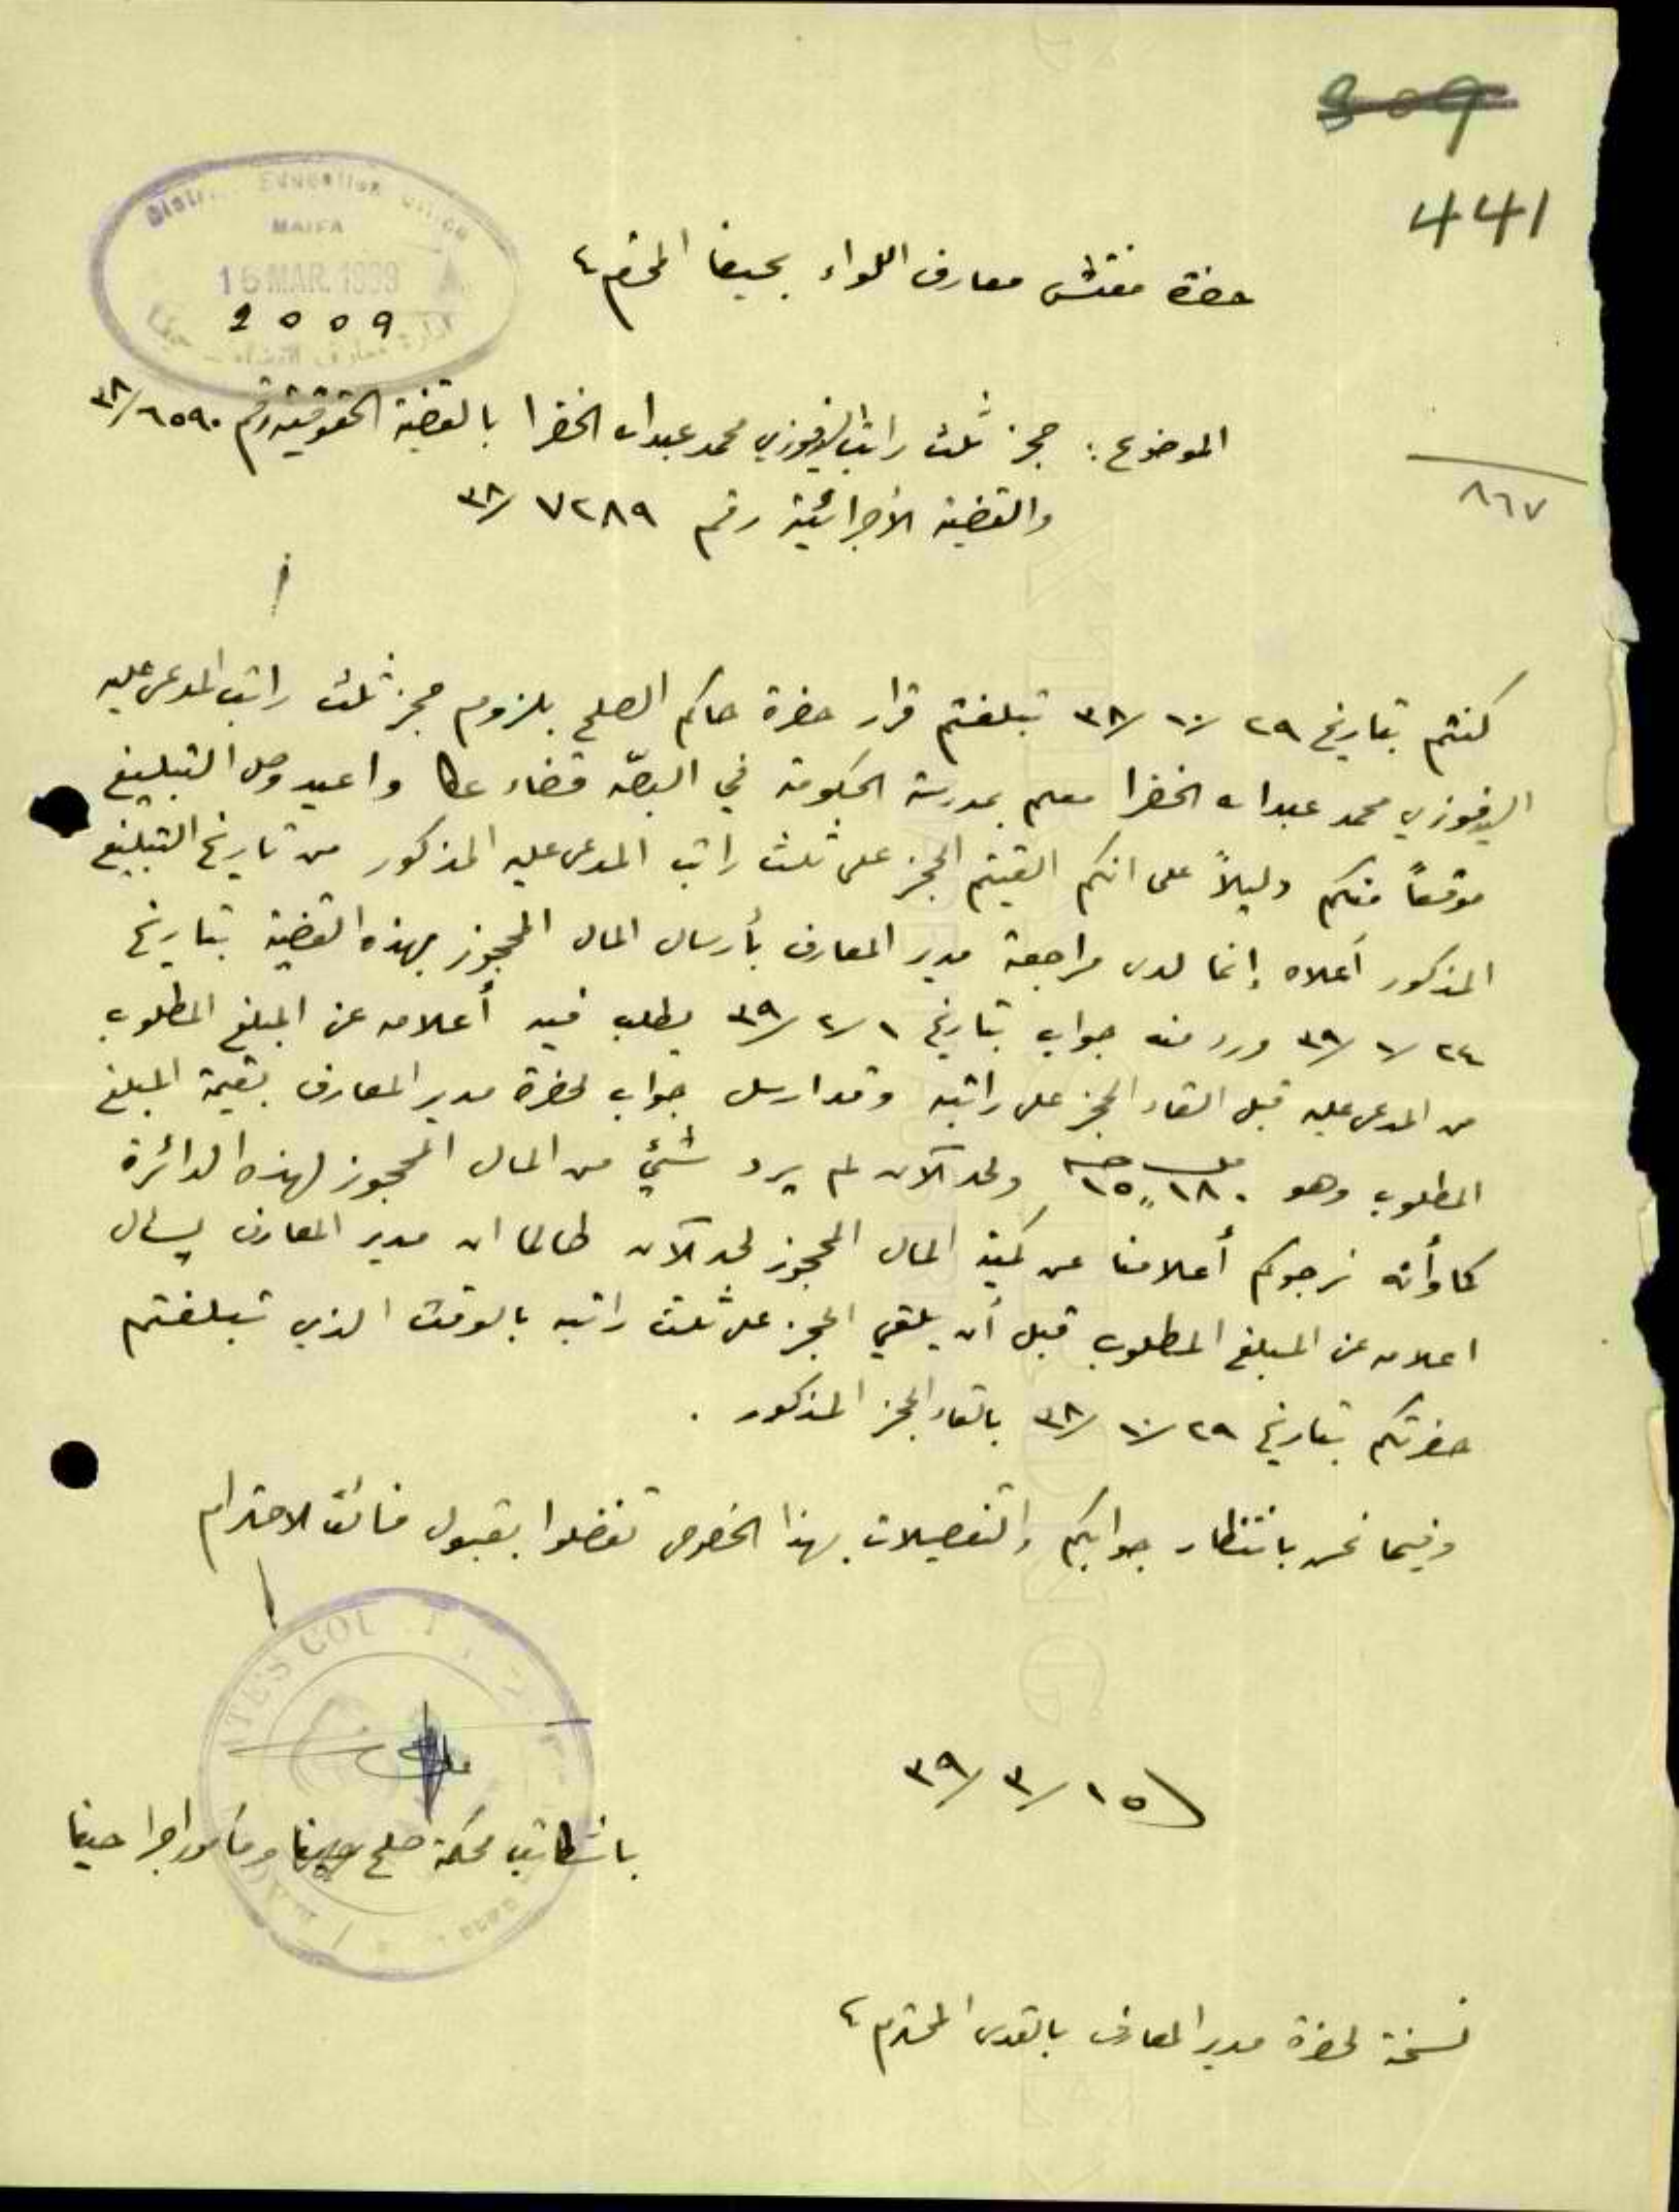 309
441
District Education Office
HAIFA
16 MAR. 1939
2009
حضرة مفتش معارف اللواء بحيفا المحترم
الموضوع: حجز ثلث راتب السيد فوزي محمد عبدالله الخضرا بالقضية الحقوقية رقم ٦٥٩٠/٣٨
والقضية الأجرائية رقم ٧٢٨٩/٣٨
٨٦٧
كنتم بتاريخ ٢٩/١٠/٣٨ تبلغتم قرار حضرة حاكم الصلح بلزوم حجز ثلث راتب المدعى عليه
السيد فوزي محمد عبدالله الخضرا معلم بمدرسة الحكومة في البصّه قضاء عكا واعيد وصل التبليغ
موقعاً منكم دليلاً على انكم القيتم الحجز على ثلث راتب المدعى عليه المذكور من تاريخ التبليغ
المذكور أعلاه إنما لدى مراجعة مدير المعارف بأرسال المال المحجوز بهذه القضية بتاريخ
٢٤/١/٣٩ ورد منه جواب بتاريخ ١/٢/٣٩ يطلب فيه أعلامه عن المبلغ المطلوب
من المدعى عليه قبل القاء الحجز على راتبه وقد ارسل جواب لحضرة مدير المعارف بقيمة المبلغ
المطلوب وهو ١٨٠ ١٥ ولحد الآن لم يرد شيئ من المال المحجوز لهذه الدائرة
كما وأنه نرجوكم أعلامنا عن كمية المال المحجوز لحد الآن طالما ان مدير المعارف يسأل
اعلامه عن المبلغ المطلوب قبل أن يلقي الحجز على ثلث راتبه بالوقت الذي تبلغتم
حضرتكم بتاريخ ٢٩/١٠/٣٨ بالقاء الحجز المذكور .
وفيما نحن بانتظار جوابكم والتفصيلات بهذا الخصوص تفضلوا بقبول فائق الاحترام
١٥/٣/٣٩
باشكاتب محكمة صلح حيفا ومأمور اجرا حيفا
نسخة لحضرة مدير المعارف بالقدس المحترم